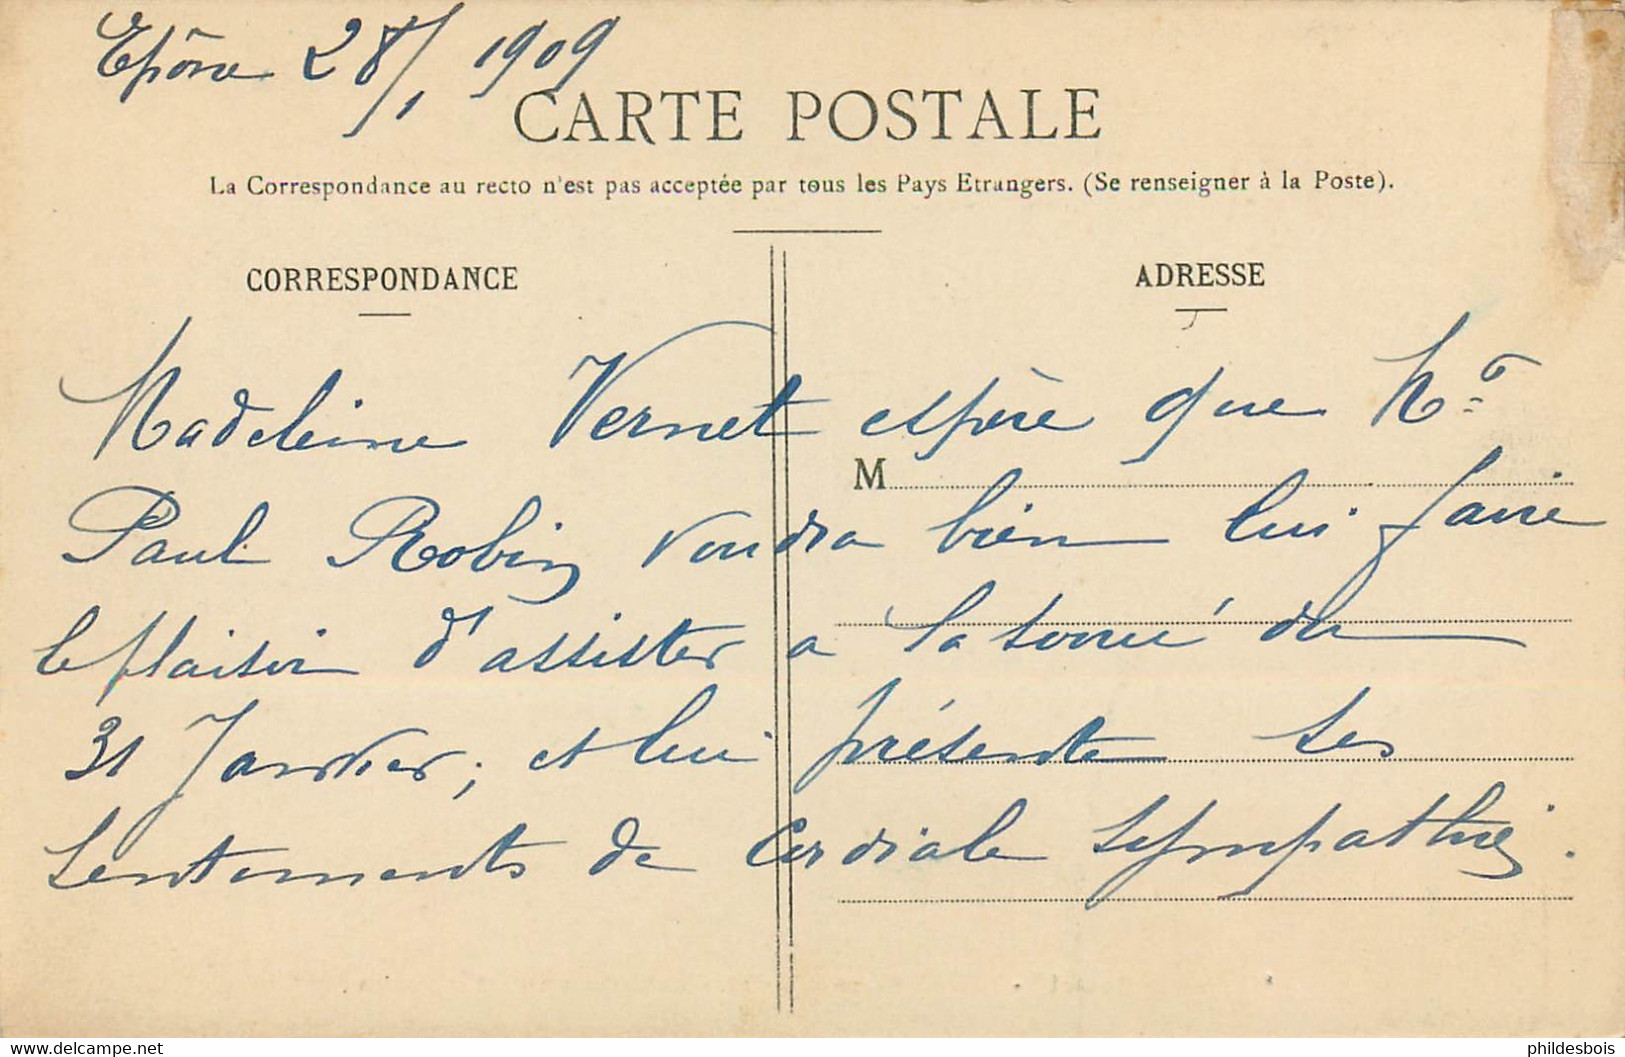 Epône 28/1 1909
CARTE POSTALE
La Correspondance au recto n'est pas acceptée par tous les Pays Etrangers. (Se renseigner à la Poste).
CORRESPONDANCE
ADRESSE
Madeleine Vernet espère que Mr
M
Paul Robin voudra bien lui faire
le plaisir d'assister a la soirée du
31 Janvier; et lui présente ses
sentiments de cordiale sympathie.
phildesbois
https://www.delcampe.net